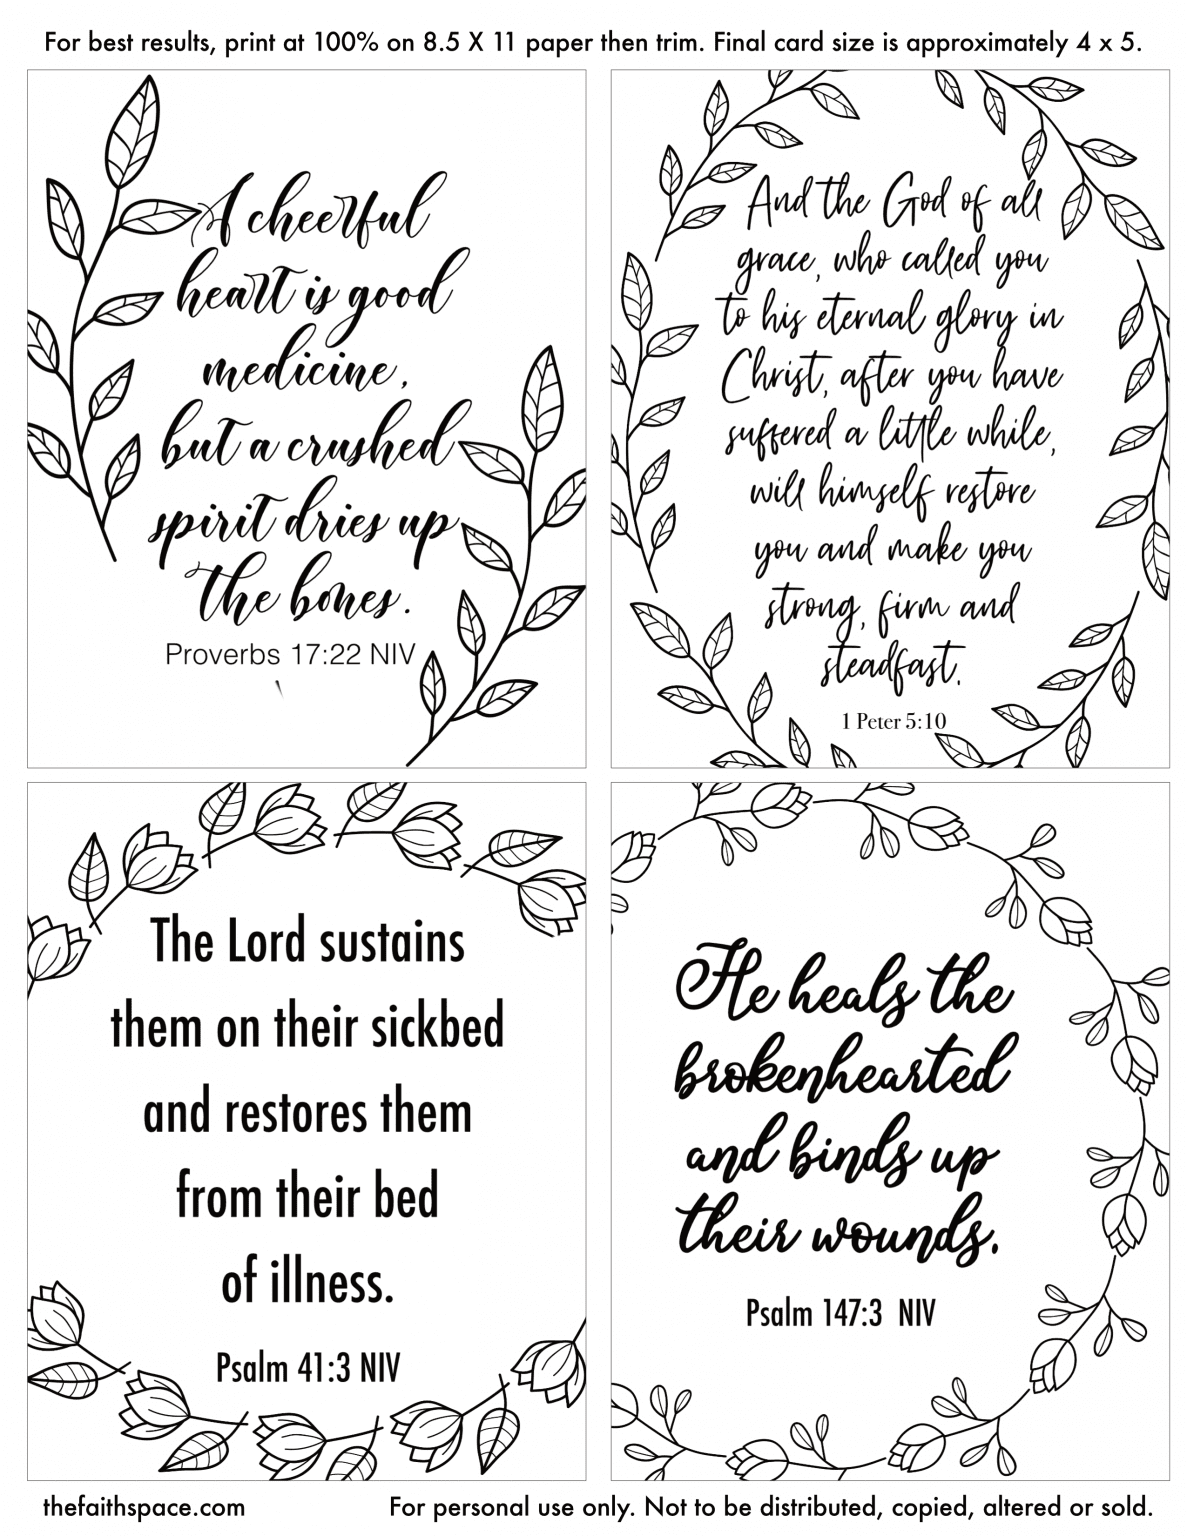 For best results, print at 100% on 8.5 X 11 paper then trim. Final card size is approximately 4 x 5.
A cheerful
heart is good
medicine,
but a crushed
spirit dries up
the bones.
Proverbs 17:22 NIV
And the God of all
grace, who called you
to his eternal glory in
Christ, after you have
suffered a little while,
will himself restore
you and make you
strong, firm and
steadfast.
1 Peter 5:10
The Lord sustains
them on their sickbed
and restores them
from their bed
of illness.
Psalm 41:3 NIV
He heals the
brokenhearted
and binds up
their wounds.
Psalm 147:3 NIV
thefaithspace.com
For personal use only. Not to be distributed, copied, altered or sold.